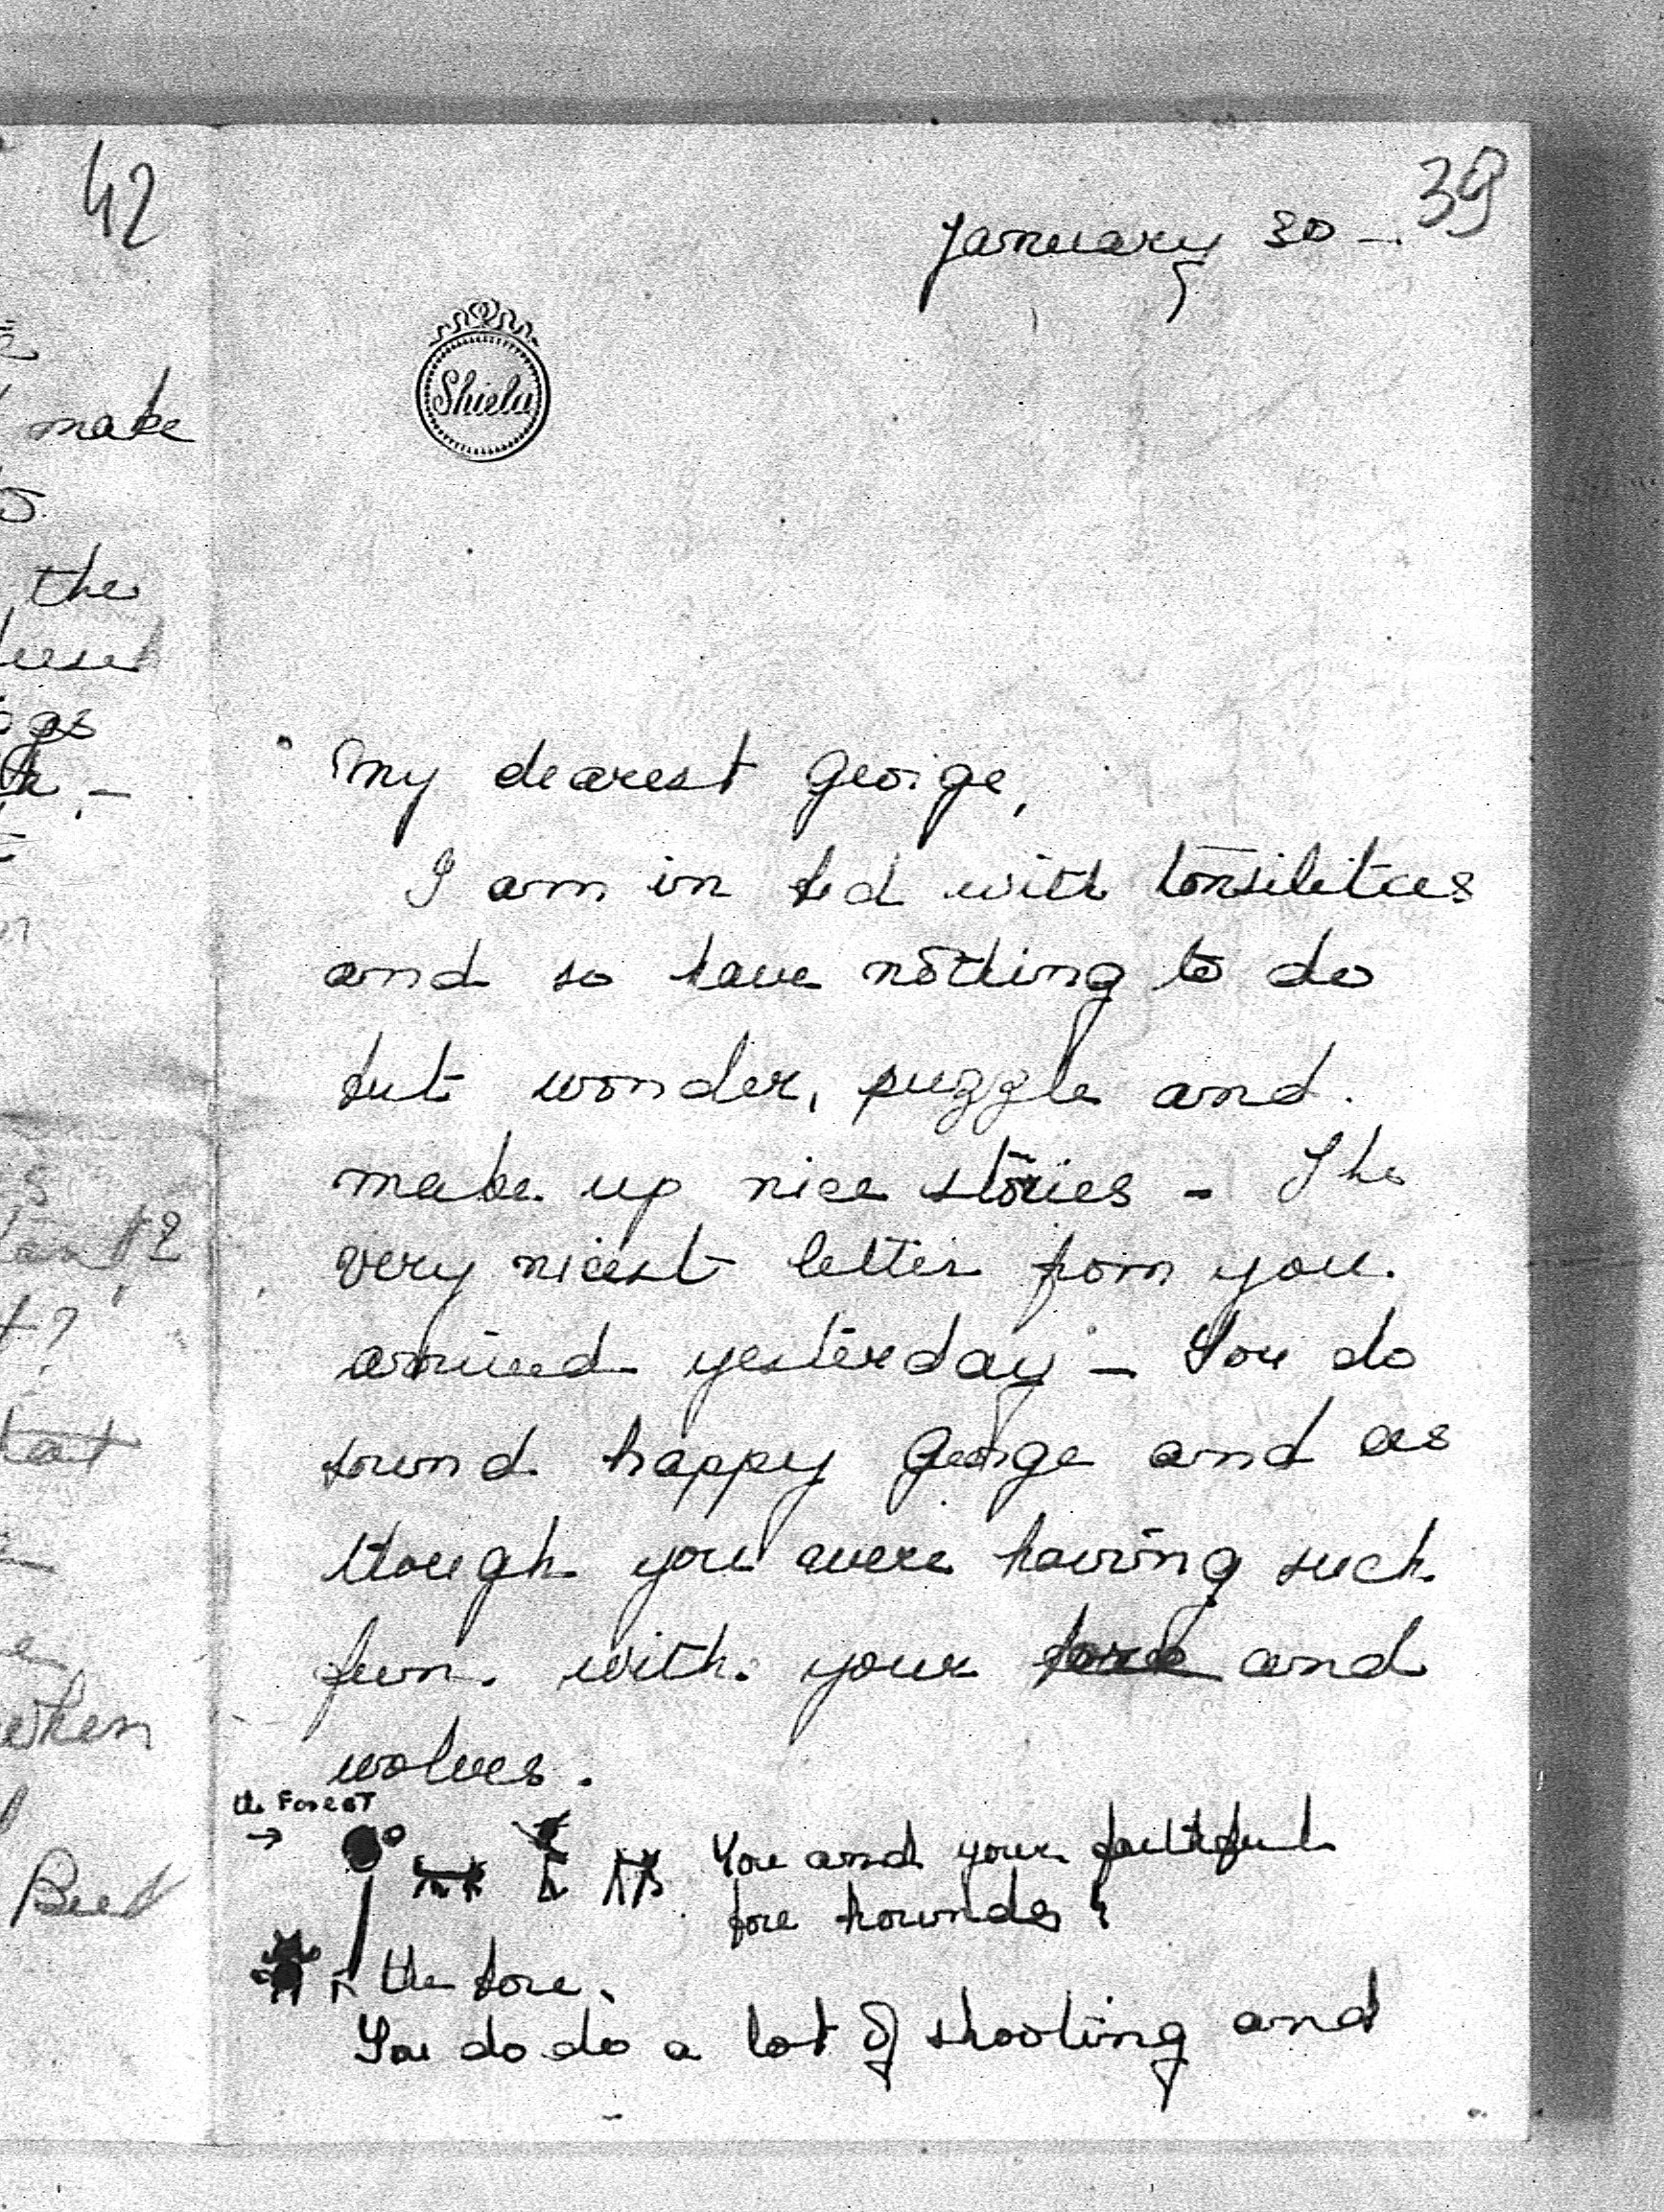 42
make
the
when
But
39
January 30 -
Shiela
My dearest George,
I am in bed with tonsilitus
and so have nothing to do
but wonder, puzzle and
make up nice stories - The
very nicest letter from you
arrived yesterday - You do
sound happy George and as
though you were having such
fun with your and
wolves.
the Forest
You and your faithful
foxe hounds!
the foxe.
You do do a lot of shooting and